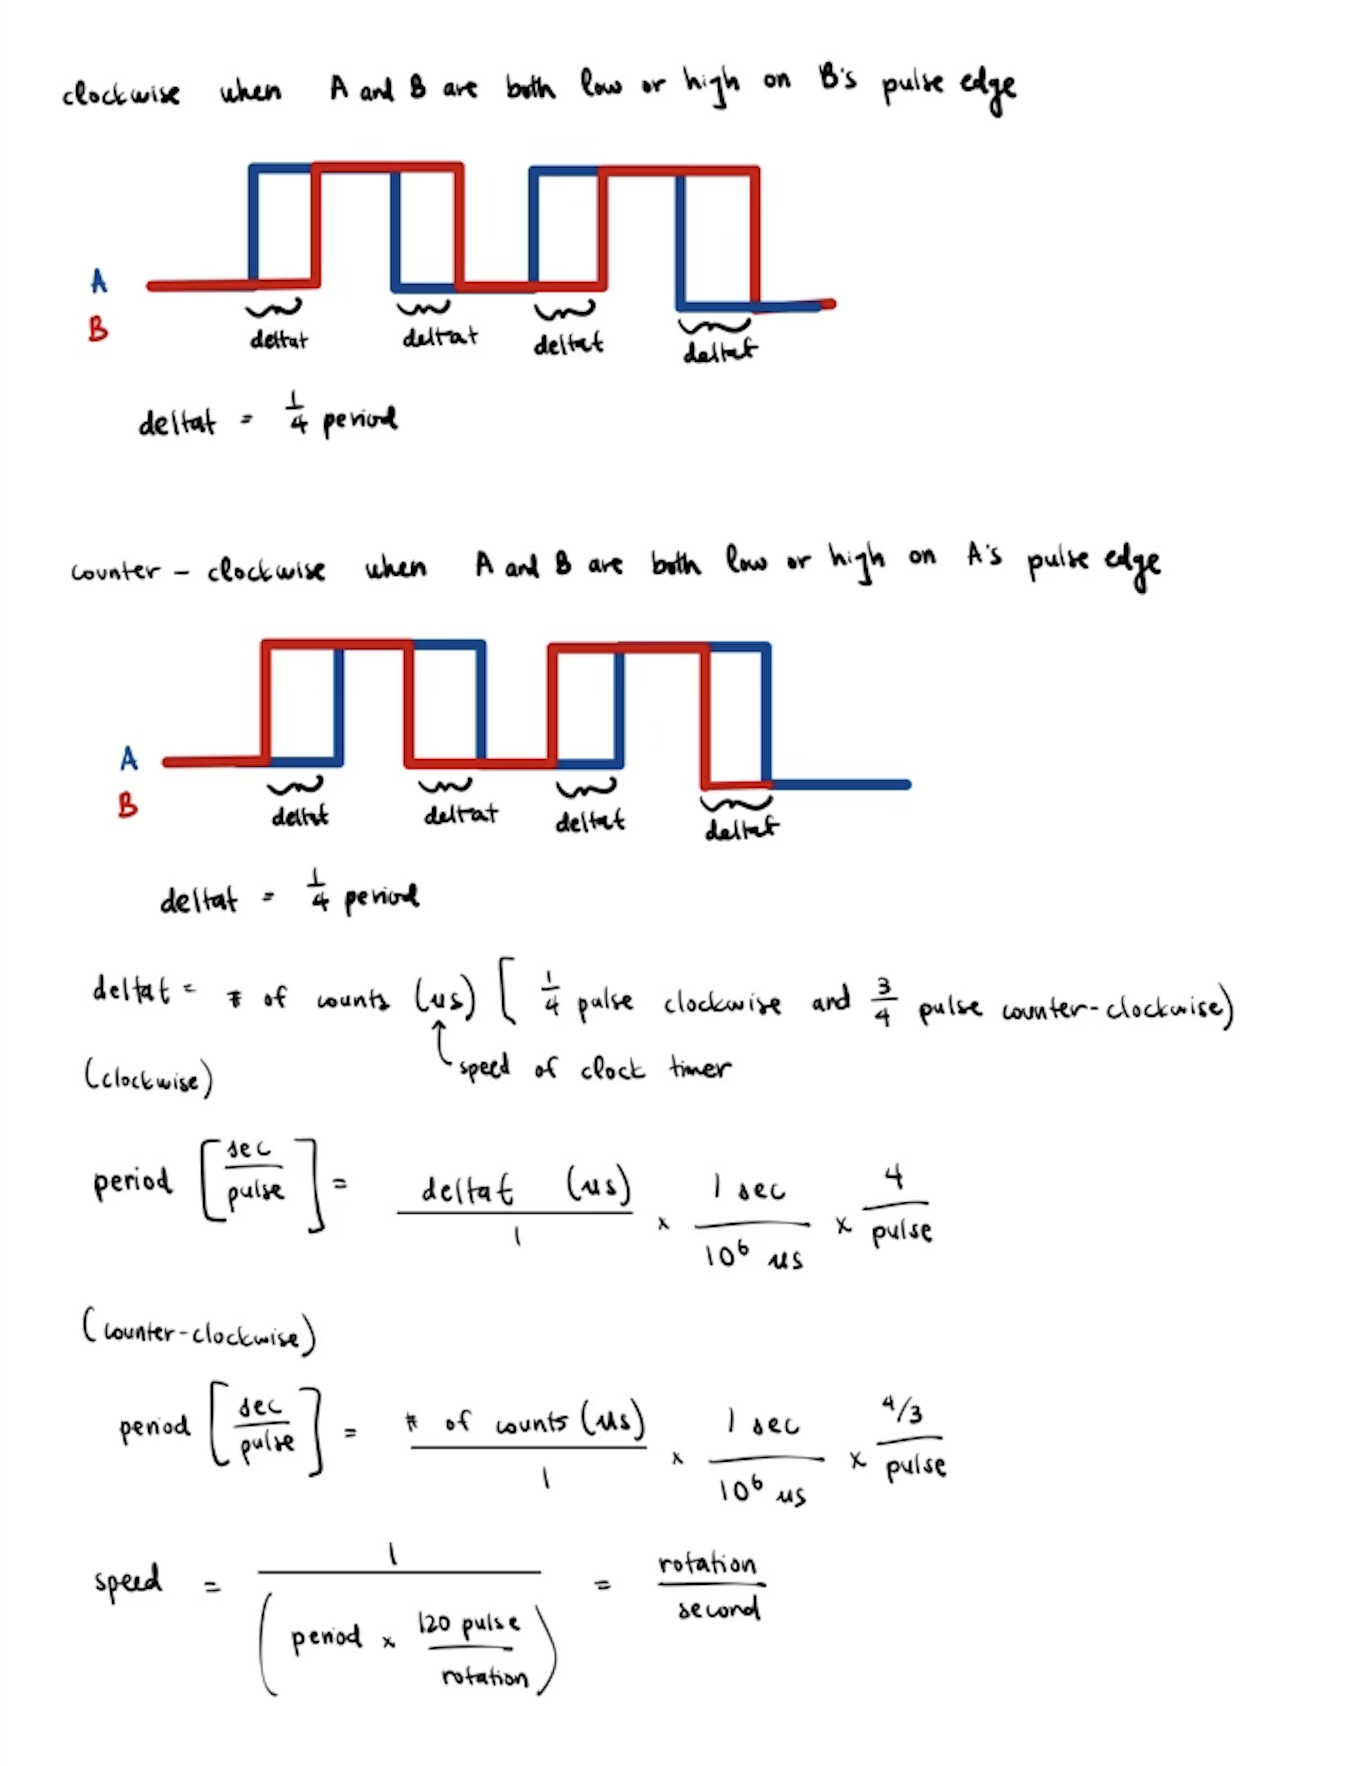 clockwise when A and B are both low or high on B's pulse edge
A
B
deltat deltat deltat deltat
deltat = 1/4 period
counter - clockwise when A and B are both low or high on A's pulse edge
A
B
deltat deltat deltat deltat
deltat = 1/4 period
deltat = # of counts (us) [ 1/4 pulse clockwise and 3/4 pulse counter-clockwise)
speed of clock timer
(clockwise)
period [sec/pulse] = deltat (us)/1 x 1 sec/10^6 us x 4/pulse
(counter-clockwise)
period [sec/pulse] = # of counts (us)/1 x 1 sec/10^6 us x 4/3/pulse
speed = 1/(period x 120 pulse/rotation) = rotation/second